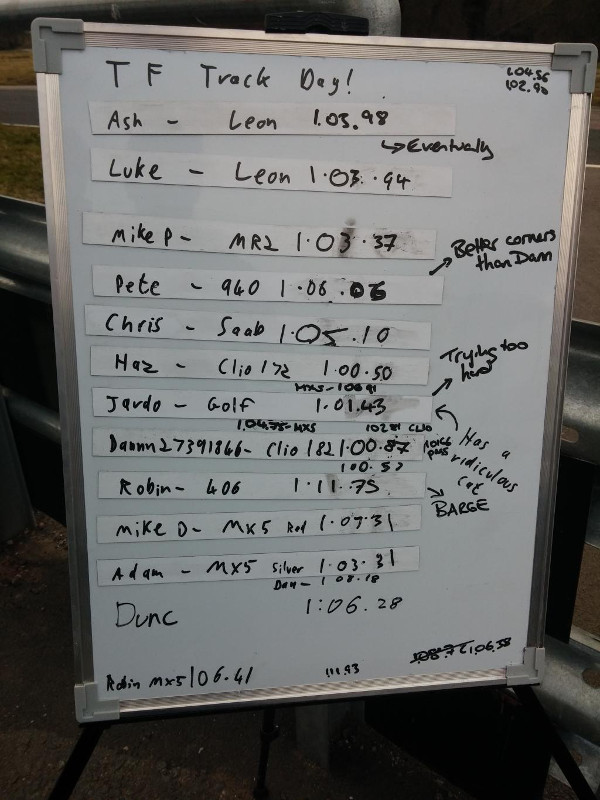 TF Track Day!
1.04.56
102.90
Ash - Leon 1.03.98
Eventually
Luke - Leon 1.03.94
Mike P - MR2 1.03.37
Better corners
than Dann
Pete - 940 1.06.06
Chris - Saab 1.05.10
Haz - Clio 172 1.00.50
Trying too
hard
MX5 - 106.91
Jardo - Golf 1.01.43
1.04.75 - MX5 102.81 CLIO
Dannn27391846 - Clio 182 1.00.87
100.57
Has a
ridiculous
cat
Robin - 406 1.11.75
BARGE
Mike D - MX5 Red 1.07.31
Adam - MX5 Silver 1.03.31
Dan - 1 08.18
Dunc 1:06.28
1:06.38
Robin MX5 106.41
111.93